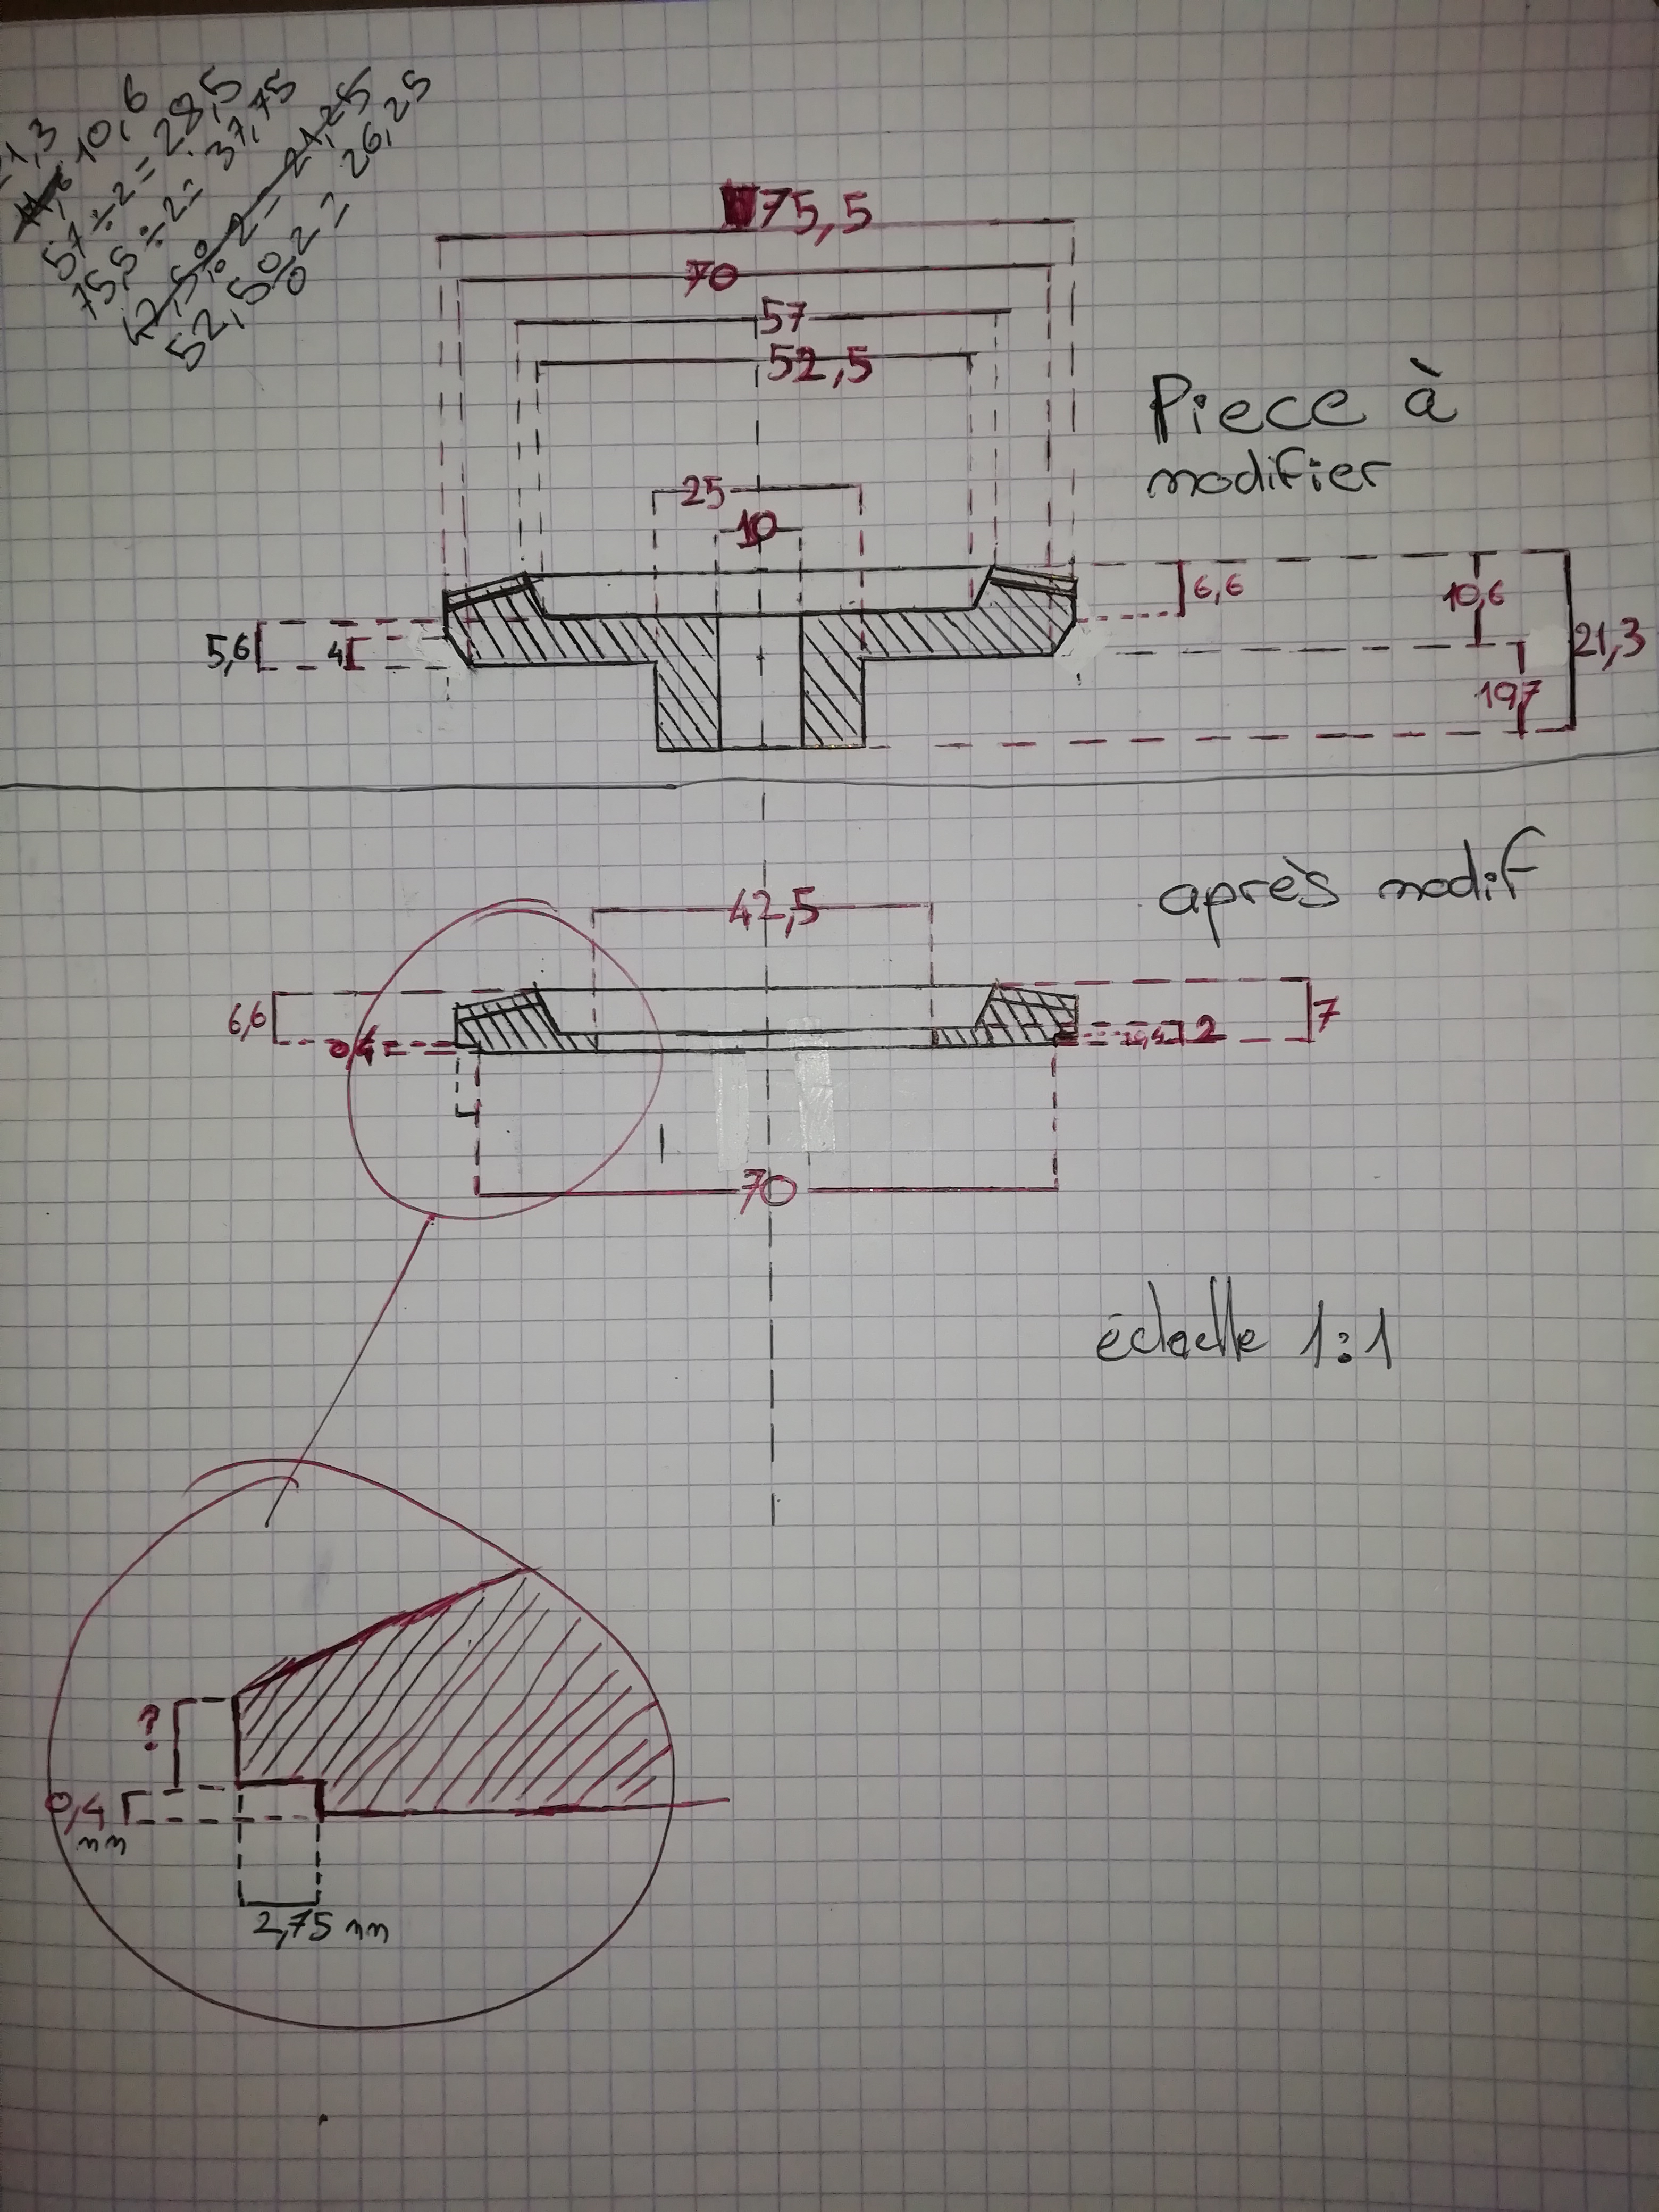 1,3
10,6
57÷2= 28,5
75,5÷2= 37,75
52,5÷2= 26,25
75,5
70
57
52,5
Piece à
modifier
25
10
6,6
10,6
5,6
4
21,3
après modif
42,5
6,6
7
0,4
2
70
échelle 1:1
?
0,4
mm
2,75 mm